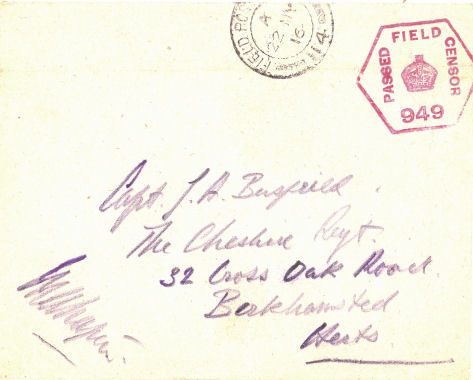 FIELD PO
A
22
16
114
PASSED FIELD CENSOR
949
Capt. J. A. Busfeild.
The Cheshire Regt.
32 Cross Oak Road.
Berkhamsted
Herts.